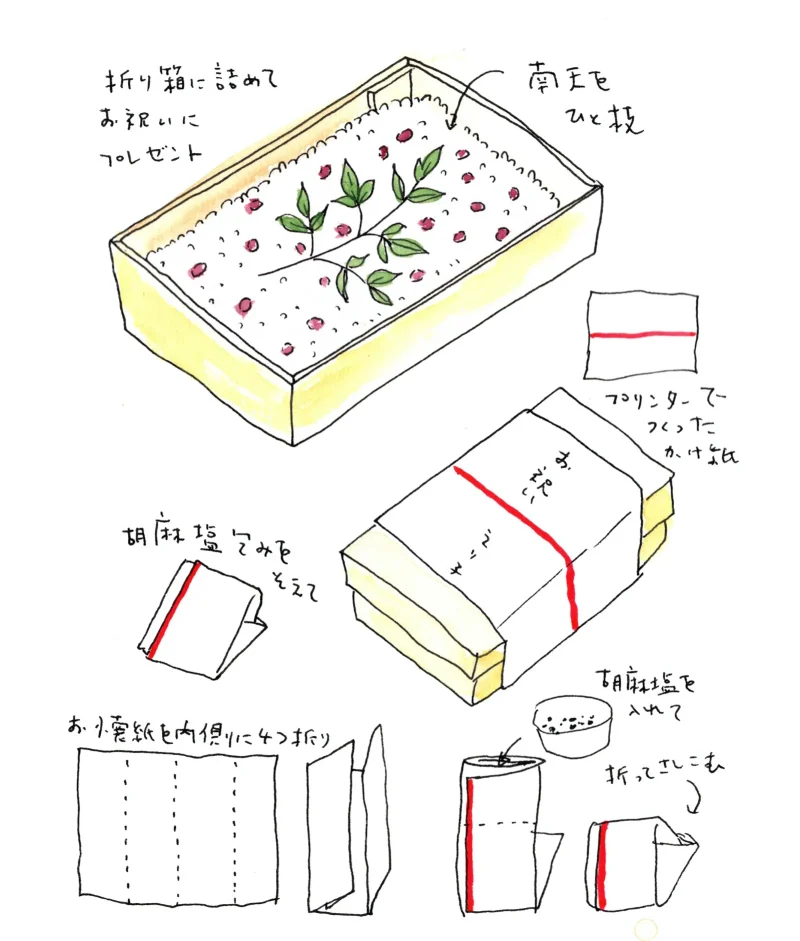 折り箱に詰めて
お祝いに
プレゼント
南天を
ひと枝
プリンターで
つくった
かけ紙
お祝い
えりも
胡麻塩包みを
そえて
胡麻塩を
入れて
お懐紙を内側に4つ折り
折ってさしこむ